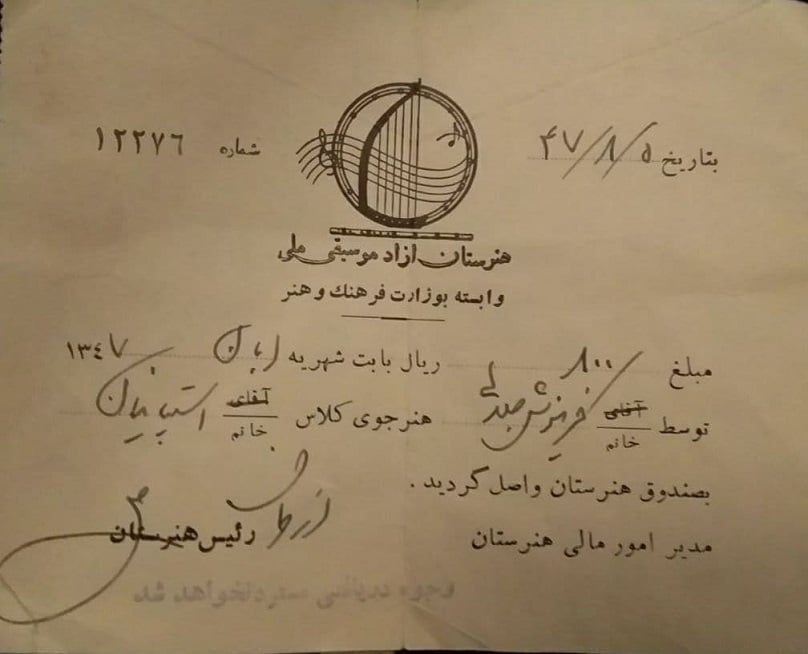 بتاریخ ۴۷/۸/۵
شماره ۱۲۲۷۶
هنرستان ازاد موسیقی ملی
وابسته بوزارت فرهنگ و هنر
مبلغ ۸۰۰ ریال بابت شهریه ابان ۱۳۴۷
توسط آقای خانم هنرجوی کلاس آقای خانم
بصندوق هنرستان واصل گردید .
مدیر امور مالی هنرستان رئیس هنرستان
وجوه دریافتی مسترد نخواهد شد